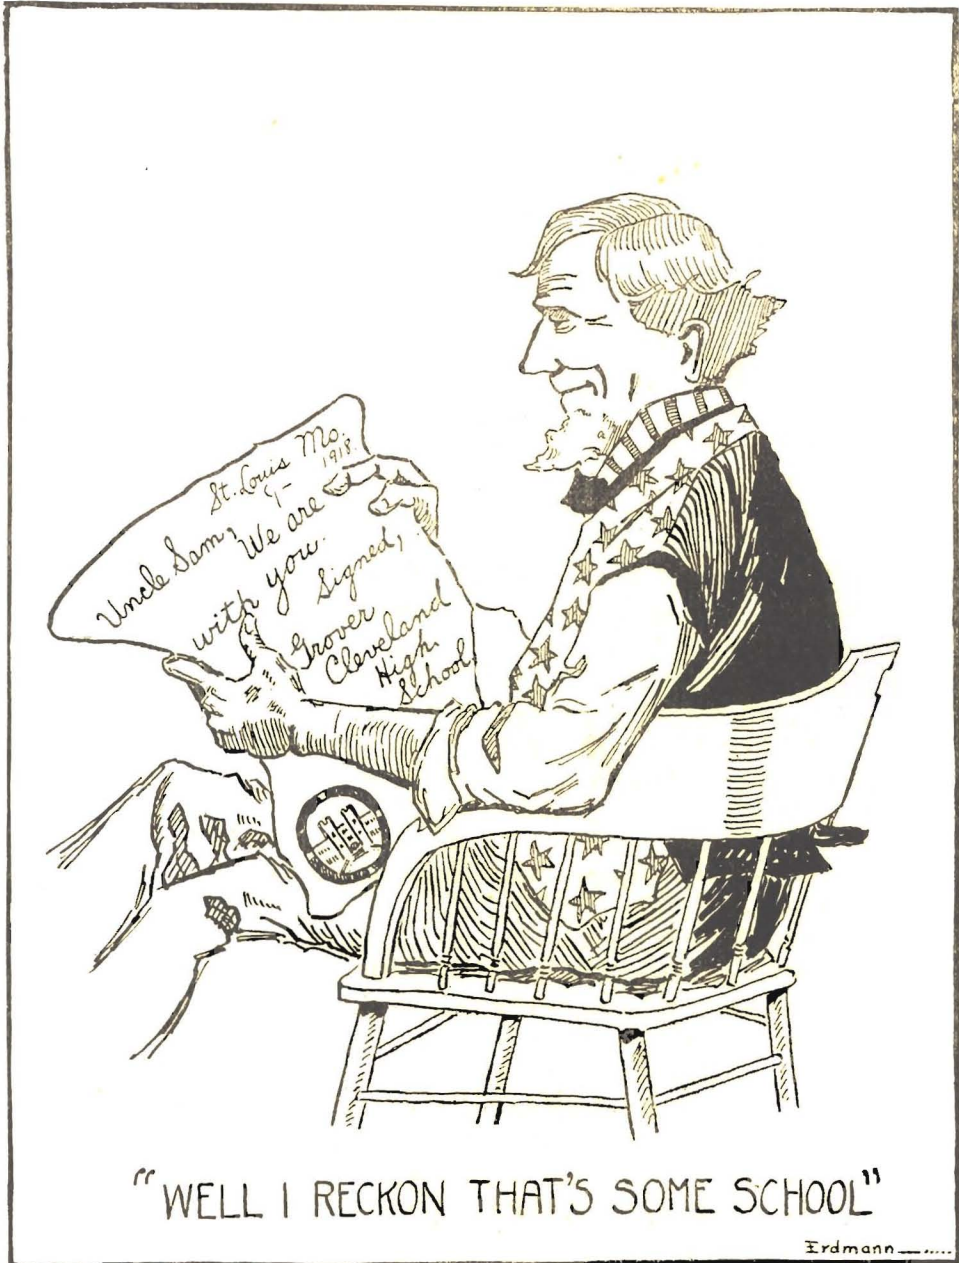 St. Louis Mo.
1918.
Uncle Sam,
We are
with you.
Signed,
Grover
Cleveland
High
School
"WELL I RECKON THAT'S SOME SCHOOL"
Erdmann